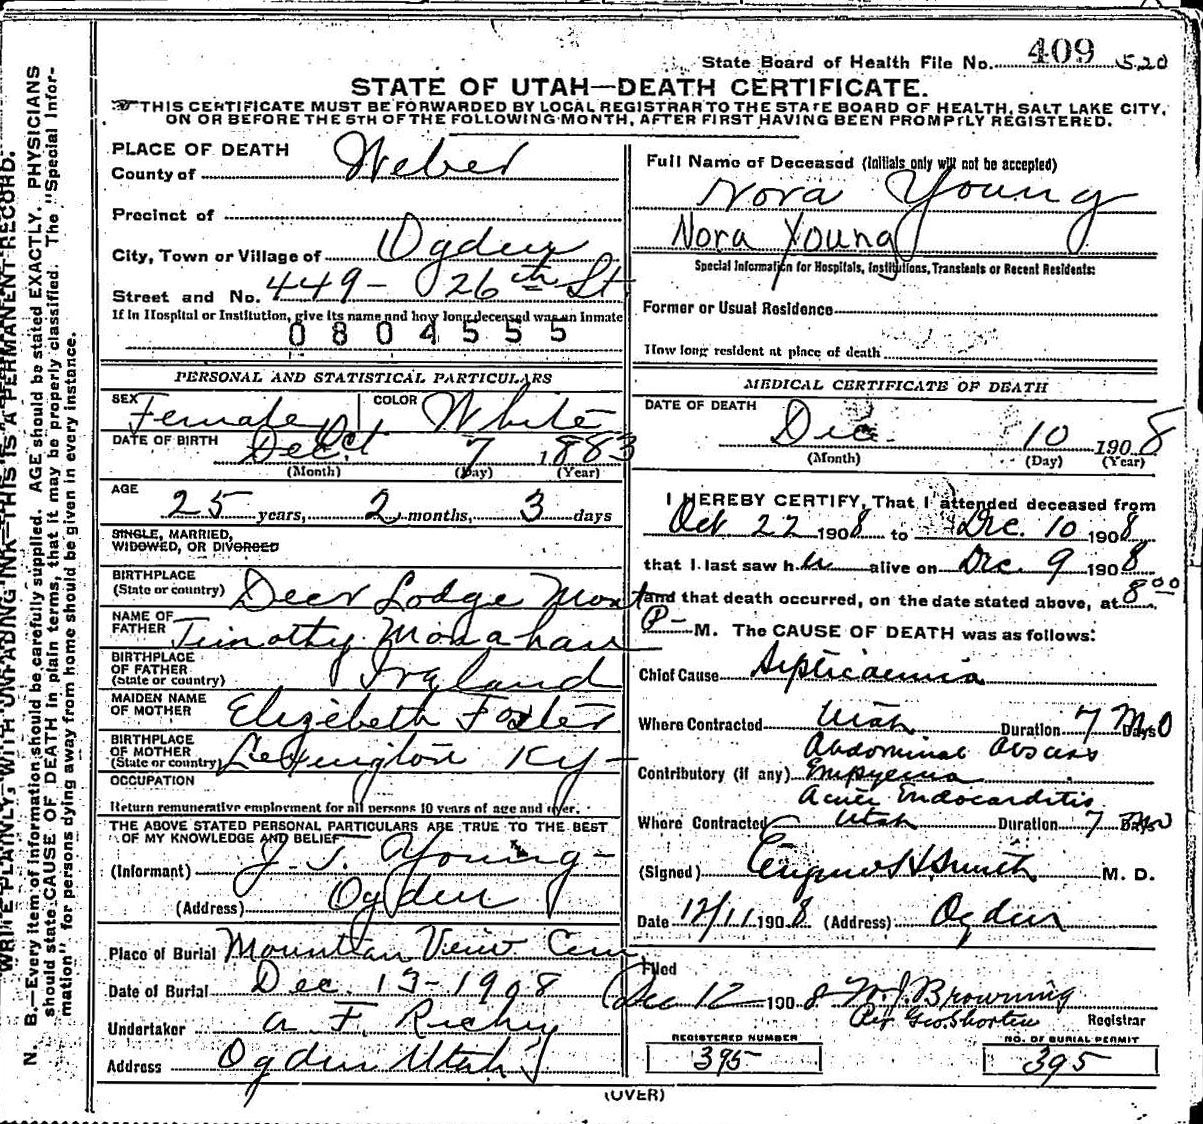 State Board of Health File No. 409 520
STATE OF UTAH—DEATH CERTIFICATE.
THIS CERTIFICATE MUST BE FORWARDED BY LOCAL REGISTRAR TO THE STATE BOARD OF HEALTH, SALT LAKE CITY,
ON OR BEFORE THE 5TH OF THE FOLLOWING MONTH, AFTER FIRST HAVING BEEN PROMPTLY REGISTERED.
WRITE PLAINLY, WITH UNFADING INK—THIS IS A PERMANENT RECORD.
N. B.—Every item of information should be carefully supplied. AGE should be stated EXACTLY. PHYSICIANS
should state CAUSE OF DEATH in plain terms, that it may be properly classified. The "Special Infor-
mation" for persons dying away from home should be given in every instance.
PLACE OF DEATH
County of Weber
Precinct of
City, Town or Village of Ogden
Street and No. 449 - 26th St
If in Hospital or Institution, give its name and how long deceased was an Inmate
0804555
PERSONAL AND STATISTICAL PARTICULARS
SEX Female COLOR White
DATE OF BIRTH Oct 7 1883
(Month) (Day) (Year)
AGE
25 years, 2 months, 3 days
SINGLE, MARRIED,
WIDOWED, OR DIVORCED
BIRTHPLACE
(State or country) Deer Lodge Mont
NAME OF
FATHER Timothy Monahan
BIRTHPLACE
OF FATHER
(State or country) Ireland
MAIDEN NAME
OF MOTHER Elizebeth Foster
BIRTHPLACE
OF MOTHER
(State or country) Lexington Ky -
OCCUPATION
Return remunerative employment for all persons 10 years of age and over.
THE ABOVE STATED PERSONAL PARTICULARS ARE TRUE TO THE BEST
OF MY KNOWLEDGE AND BELIEF
(Informant) J. T. Young -
(Address) Ogden
Place of Burial Mountian View Cem
Date of Burial Dec. 13 - 1908
Undertaker A. F. Richey
Address Ogden Utah
Full Name of Deceased (Initials only will not be accepted)
Nora Young
Nora Young
Special Information for Hospitals, Institutions, Transients or Recent Residents:
Former or Usual Residence
How long resident at place of death
MEDICAL CERTIFICATE OF DEATH
DATE OF DEATH
Dec. 10 1908
(Month) (Day) (Year)
I HEREBY CERTIFY, That I attended deceased from
Oct 22 1908 to Dec. 10 1908
that I last saw her alive on Dec. 9 1908
and that death occurred, on the date stated above, at 8 00
P - M. The CAUSE OF DEATH was as follows:
Chief Cause Septicaemia
Where Contracted Utah Duration 7 Mo Days
Abdominal Abscess
Contributory (if any) Empyema
Acute Endocarditis
Where Contracted Utah Duration 7 Days
(Signed) Eugene H Smith M. D.
Date 12/11 1908 (Address) Ogden
Filed
Dec 12 1908 M. J. Browning
Per Geo. Shorten Registrar
REGISTERED NUMBER
395
NO. OF BURIAL PERMIT
395
(OVER)